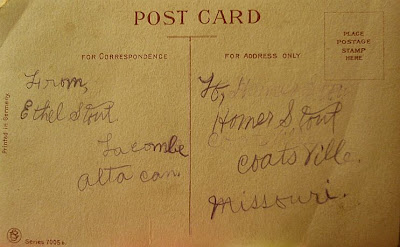 POST CARD
FOR CORRESPONDENCE
FOR ADDRESS ONLY
PLACE
POSTAGE
STAMP
HERE
Printed in Germany.
From,
Ethel Stout
Lacombe
alta can.
To,
Homer Stout
coatsville.
Missouri.
Series 7005 b.